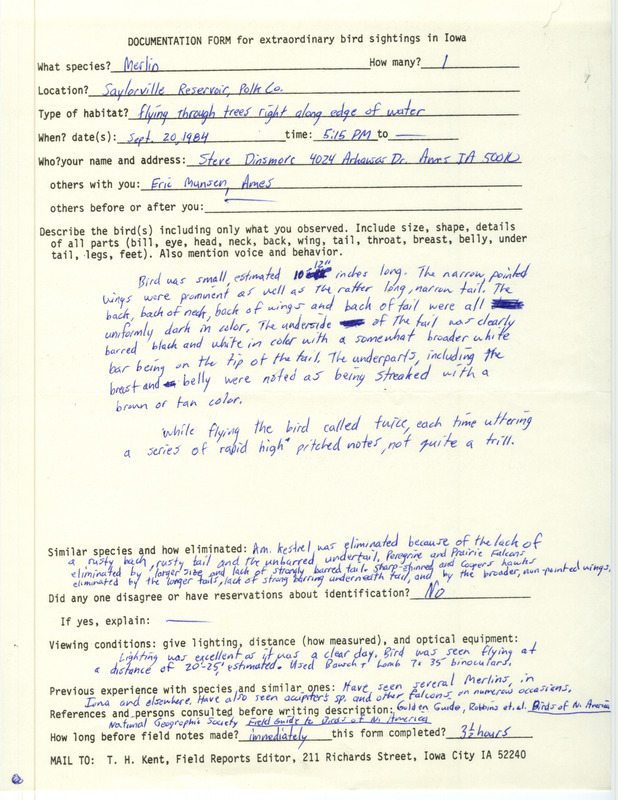 DOCUMENTATION FORM for extraordinary bird sightings in Iowa
What species? Merlin How many? 1
Location? Saylorville Reservoir, Polk Co.
Type of habitat? flying through trees right along edge of water
When? date(s): Sept. 20, 1984 time: 5:15 PM to —
Who? your name and address: Steve Dinsmore 4024 Arkansas Dr. Ames IA 50010
others with you: Eric Munson, Ames
others before or after you:
Describe the bird(s) including only what you observed. Include size, shape, details
of all parts (bill, eye, head, neck, back, wing, tail, throat, breast, belly, under
tail, legs, feet). Also mention voice and behavior.
Bird was small, estimated 12" inches long. The narrow, pointed
wings were prominent as well as the rather long, narrow tail. The
back, back of neck, back of wings and back of tail were all
uniformly dark in color. The underside of the tail was clearly
barred black and white in color with a somewhat broader white
bar being on the tip of the tail. The underparts, including the
breast and belly were noted as being streaked with a
brown or tan color.
While flying the bird called twice, each time uttering
a series of rapid high pitched notes, not quite a trill.
Similar species and how eliminated: Am. Kestrel was eliminated because of the lack of
a rusty back, rusty tail and the unbarred undertail. Peregrine and Prairie Falcons
eliminated by larger size and lack of strongly barred tail. Sharp-shinned and Coopers hawks
eliminated by the longer tails, lack of strong barring underneath tail, and by the broader, non-pointed wings.
Did any one disagree or have reservations about identification? No
If yes, explain: —
Viewing conditions: give lighting, distance (how measured), and optical equipment:
Lighting was excellent as it was a clear day. Bird was seen flying at
a distance of 20-25', estimated. Used Bausch & Lomb 7x35 binoculars.
Previous experience with species and similar ones: Have seen several Merlins, in
Iowa and elsewhere. Have also seen accipiters sp. and other falcons on numerous occasions.
References and persons consulted before writing description: Golden Guide, Robbins et. al. Birds of N. America
National Geographic Society Field Guide to Birds of N. America
How long before field notes made? immediately this form completed? 3½ hours
MAIL TO: T. H. Kent, Field Reports Editor, 211 Richards Street, Iowa City IA 52240